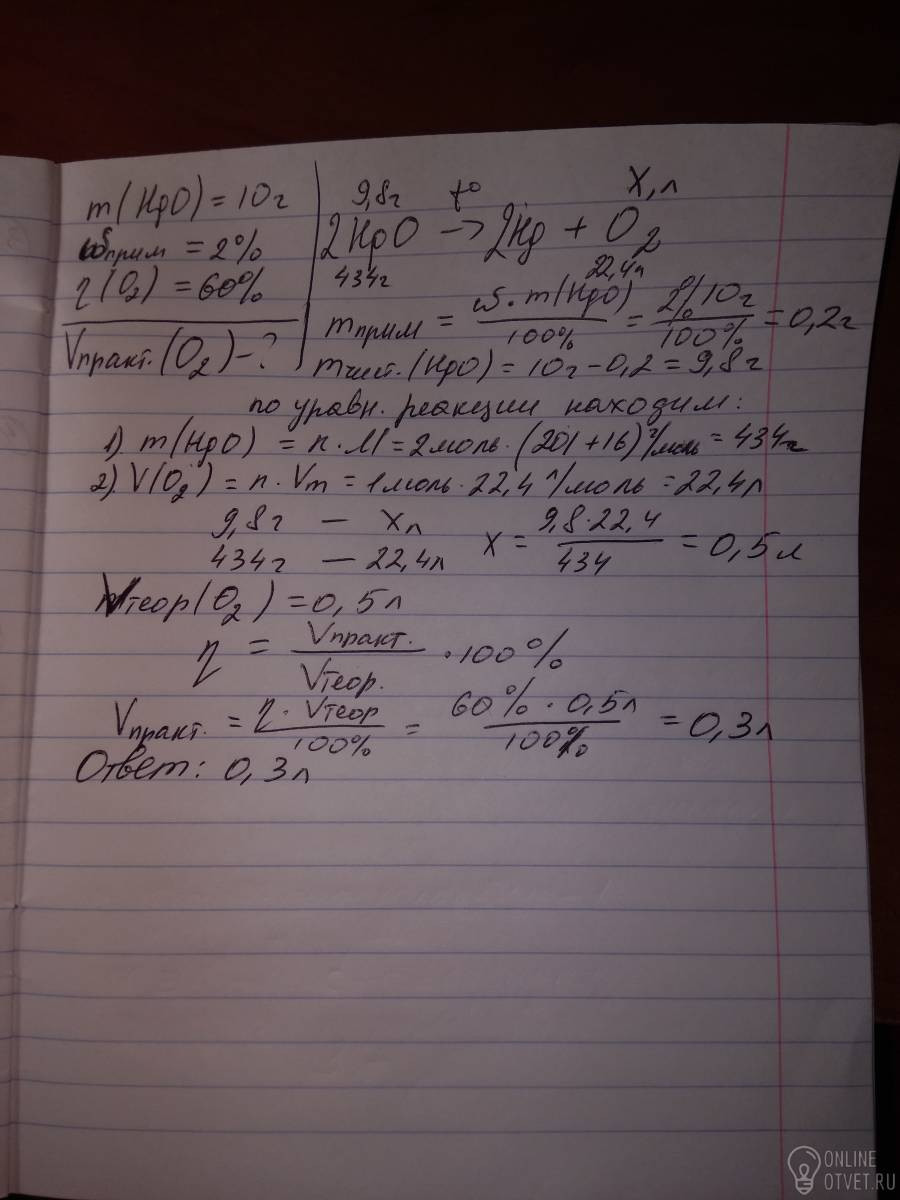 m(HgO) = 10г
ωприм = 2%
η(O₂) = 60%
Vпракт.(O₂) – ?
9,8г t° X,л
2HgO → 2Hg + O₂
434г 22,4л
mприм = ω·m(HgO)/100% = 2%·10г/100% = 0,2г
mчист.(HgO) = 10г – 0,2 = 9,8г
по уравн. реакции находим:
1) m(HgO) = n·M = 2моль·(201+16)г/моль = 434г
2) V(O₂) = n·Vm = 1моль·22,4л/моль = 22,4л
9,8г – Xл X = 9,8·22,4/434 = 0,5л
434г – 22,4л
Vтеор(O₂) = 0,5л
η = Vпракт./Vтеор. ·100%
Vпракт. = η·Vтеор/100% = 60%·0,5л/100% = 0,3л
Ответ: 0,3л
ONLINE
OTVET.RU